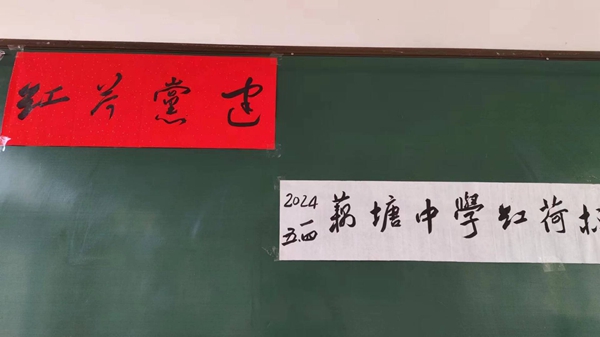 红荷黨建
2024
五.四
藕塘中學红荷